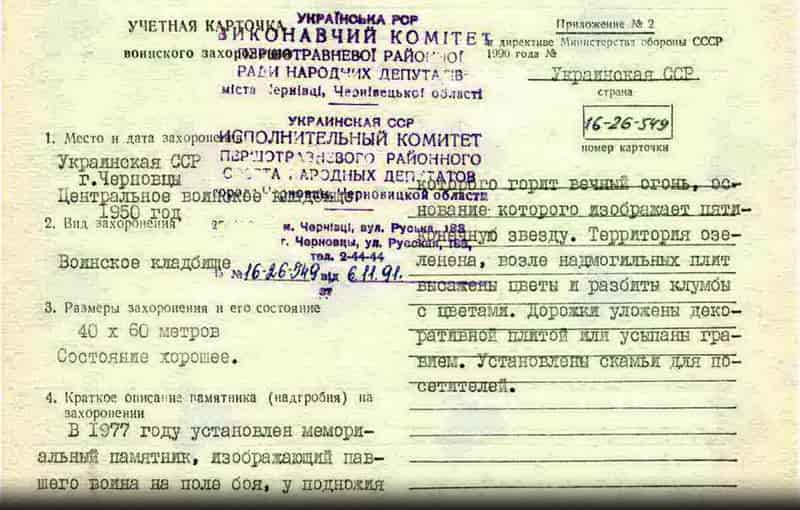 УЧЕТНАЯ КАРТОЧКА
воинского захоронения
УКРАЇНСЬКА РСР
ВИКОНАВЧИЙ КОМІТЕТ
ПЕРШОТРАВНЕВОЇ РАЙОННОЇ
РАДИ НАРОДНИХ ДЕПУТАТІВ
міста Чернівці, Чернівецької області
УКРАИНСКАЯ ССР
ИСПОЛНИТЕЛЬНЫЙ КОМИТЕТ
ПЕРШОТРАВНЕВОГО РАЙОННОГО
СОВЕТА НАРОДНЫХ ДЕПУТАТОВ
города Черновцы, Черновицкой области
м. Чернівці, вул. Руська, 183
г. Черновцы, ул. Русская, 183,
тел. 2-44-44
№ 16-26-549 від 6.11.91.
Приложение № 2
к директиве Министерства обороны СССР
1990 года №
Украинская ССР.
страна
16-26-549
номер карточки
1. Место и дата захоронения
Украинская ССР
г.Черновцы
Центральное воинское кладбище
1950 год
2. Вид захоронения
Воинское кладбище
3. Размеры захоронения и его состояние
40 х 60 метров
Состояние хорошее.
4. Краткое описание памятника (надгробия) на
захоронении
В 1977 году установлен мемори-
альный памятник, изображающий пав-
шего воина на поле боя, у подножия
которого горит вечный огонь, ос-
нование которого изображает пяти-
конечную звезду. Территория озе-
ленена, возле надмогильных плит
высажены цветы и разбиты клумбы
с цветами. Дорожки уложены деко-
ративной плитой или усыпаны гра-
вием. Установлены скамьи для по-
сетителей.